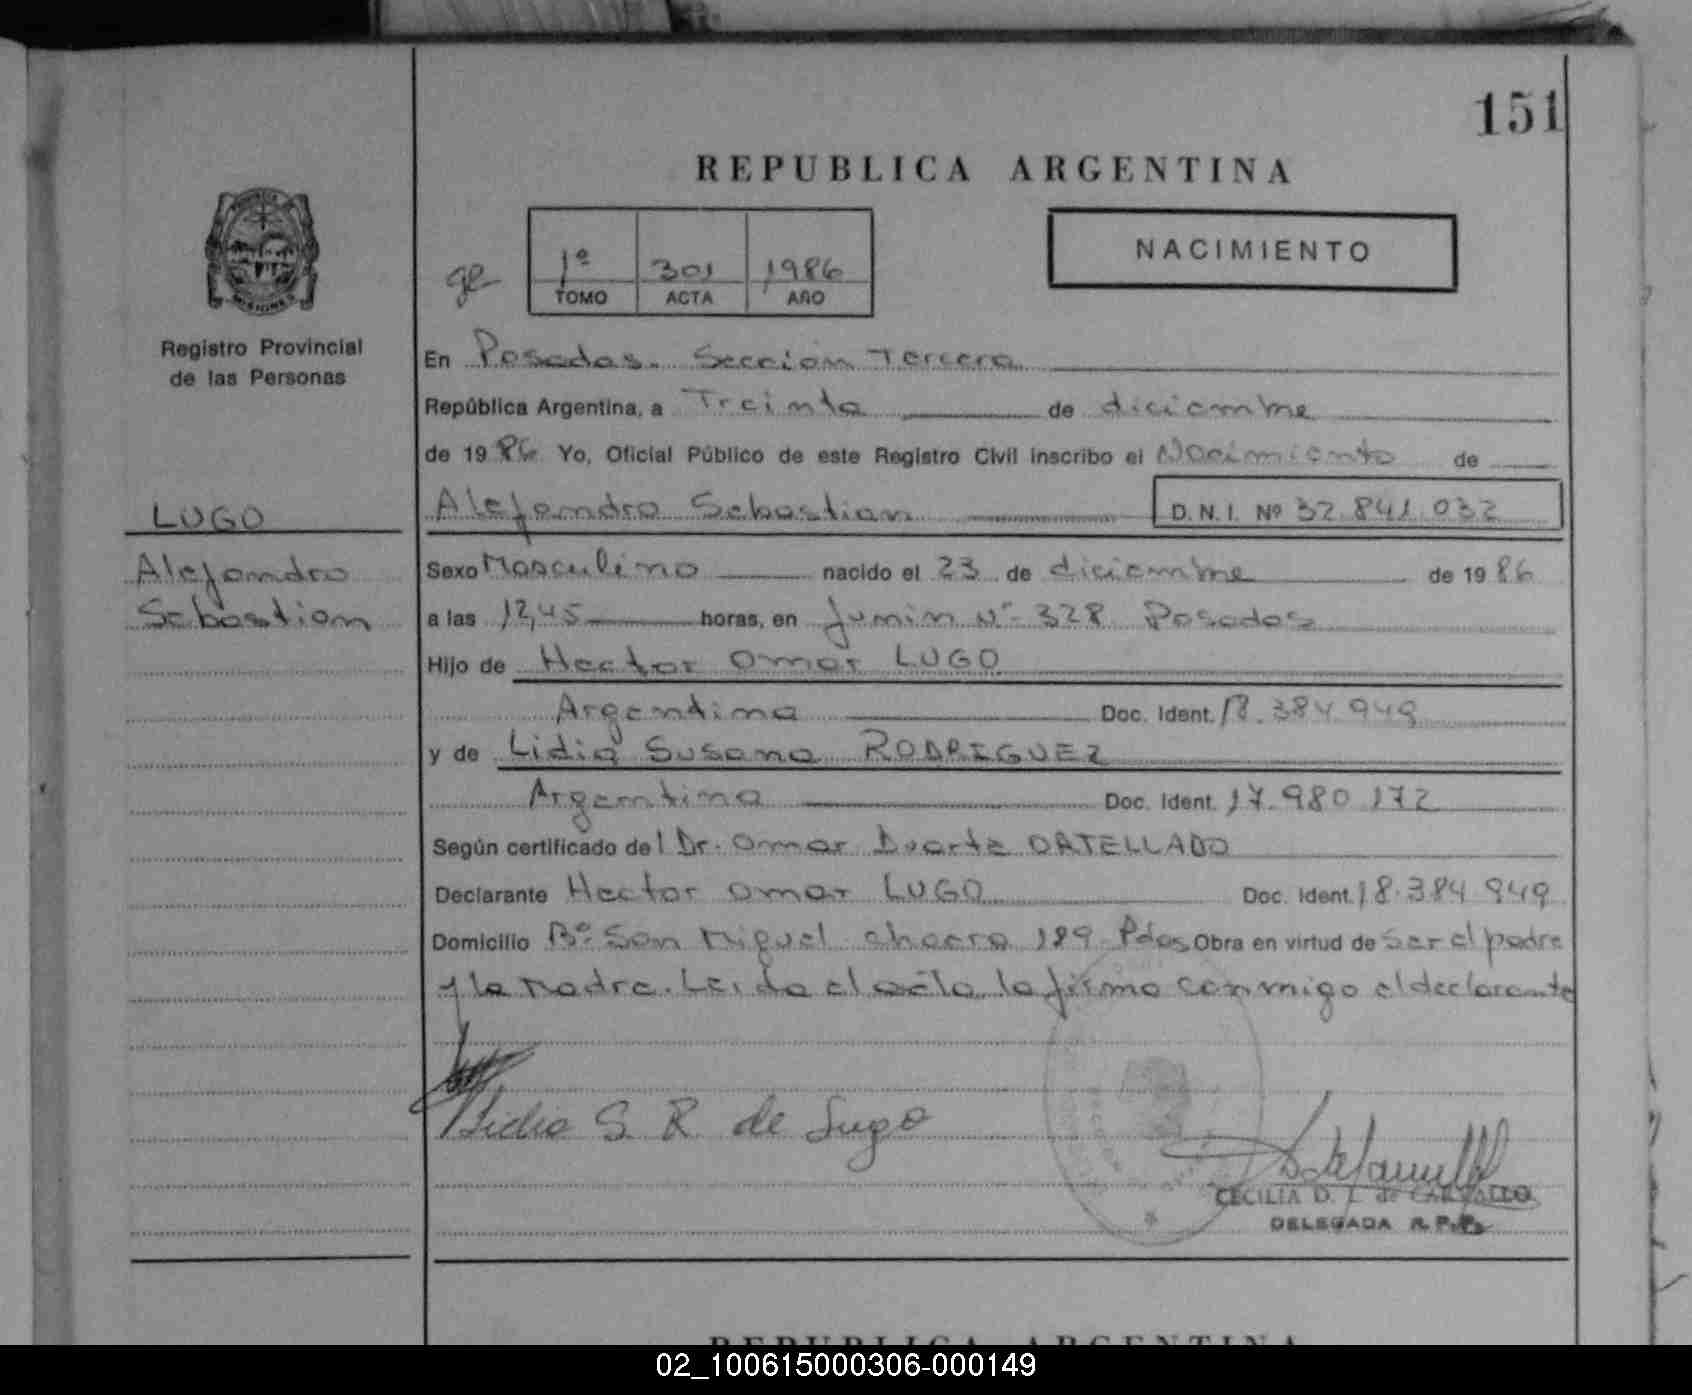 151
REPUBLICA ARGENTINA
1º 301 1986
TOMO ACTA AÑO
NACIMIENTO
MISIONES
Registro Provincial
de las Personas
LUGO
Alejandro
Sebastian
En Posadas. Sección Tercera
República Argentina, a Treinta de diciembre
de 1986 Yo, Oficial Público de este Registro Civil inscribo el Nacimiento de
Alejandro Sebastian D.N.I. Nº 32.841.032
Sexo Masculino nacido el 23 de diciembre de 1986
a las 12,45 horas, en Junin Nº 328 Posadas
Hijo de Hector Omar LUGO
Argentina Doc. Ident. 18.384.949
y de Lidia Susana RODRIGUEZ
Argentina Doc. Ident. 17.980.172
Según certificado del Dr. Omar Duarte ORTELLADO
Declarante Hector Omar LUGO Doc. Ident. 18.384.949
Domicilio Bº San Miguel chacra 189 Pdas Obra en virtud de ser el padre
y la Madre. Leida el acta la firma conmigo el declarante
Lidia S. R. de Lugo
CECILIA D. de CARVALLO
DELEGADA R.P.P.
REPUBLICA ARGENTINA
02_100615000306-000149